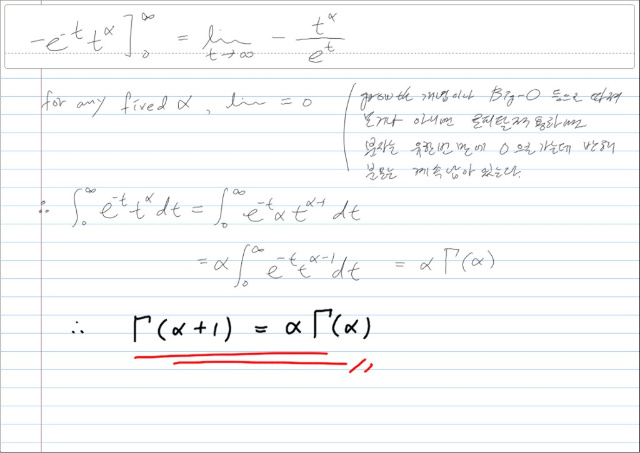 -e^{-t} t^α ]_0^∞ = lim_{t→∞} - t^α / e^t
for any fixed α, lim = 0
growth 개념이나 Big-O 등으로 따져
보거나 아니면 로피탈 적용하면
분자는 유한번 만에 0으로 가는데 반해
분모는 계속 남아 있는다.
∴ ∫_0^∞ e^{-t} t^α dt = ∫_0^∞ e^{-t} α t^{α-1} dt
= α ∫_0^∞ e^{-t} t^{α-1} dt = α Γ(α)
∴ Γ(α+1) = α Γ(α)